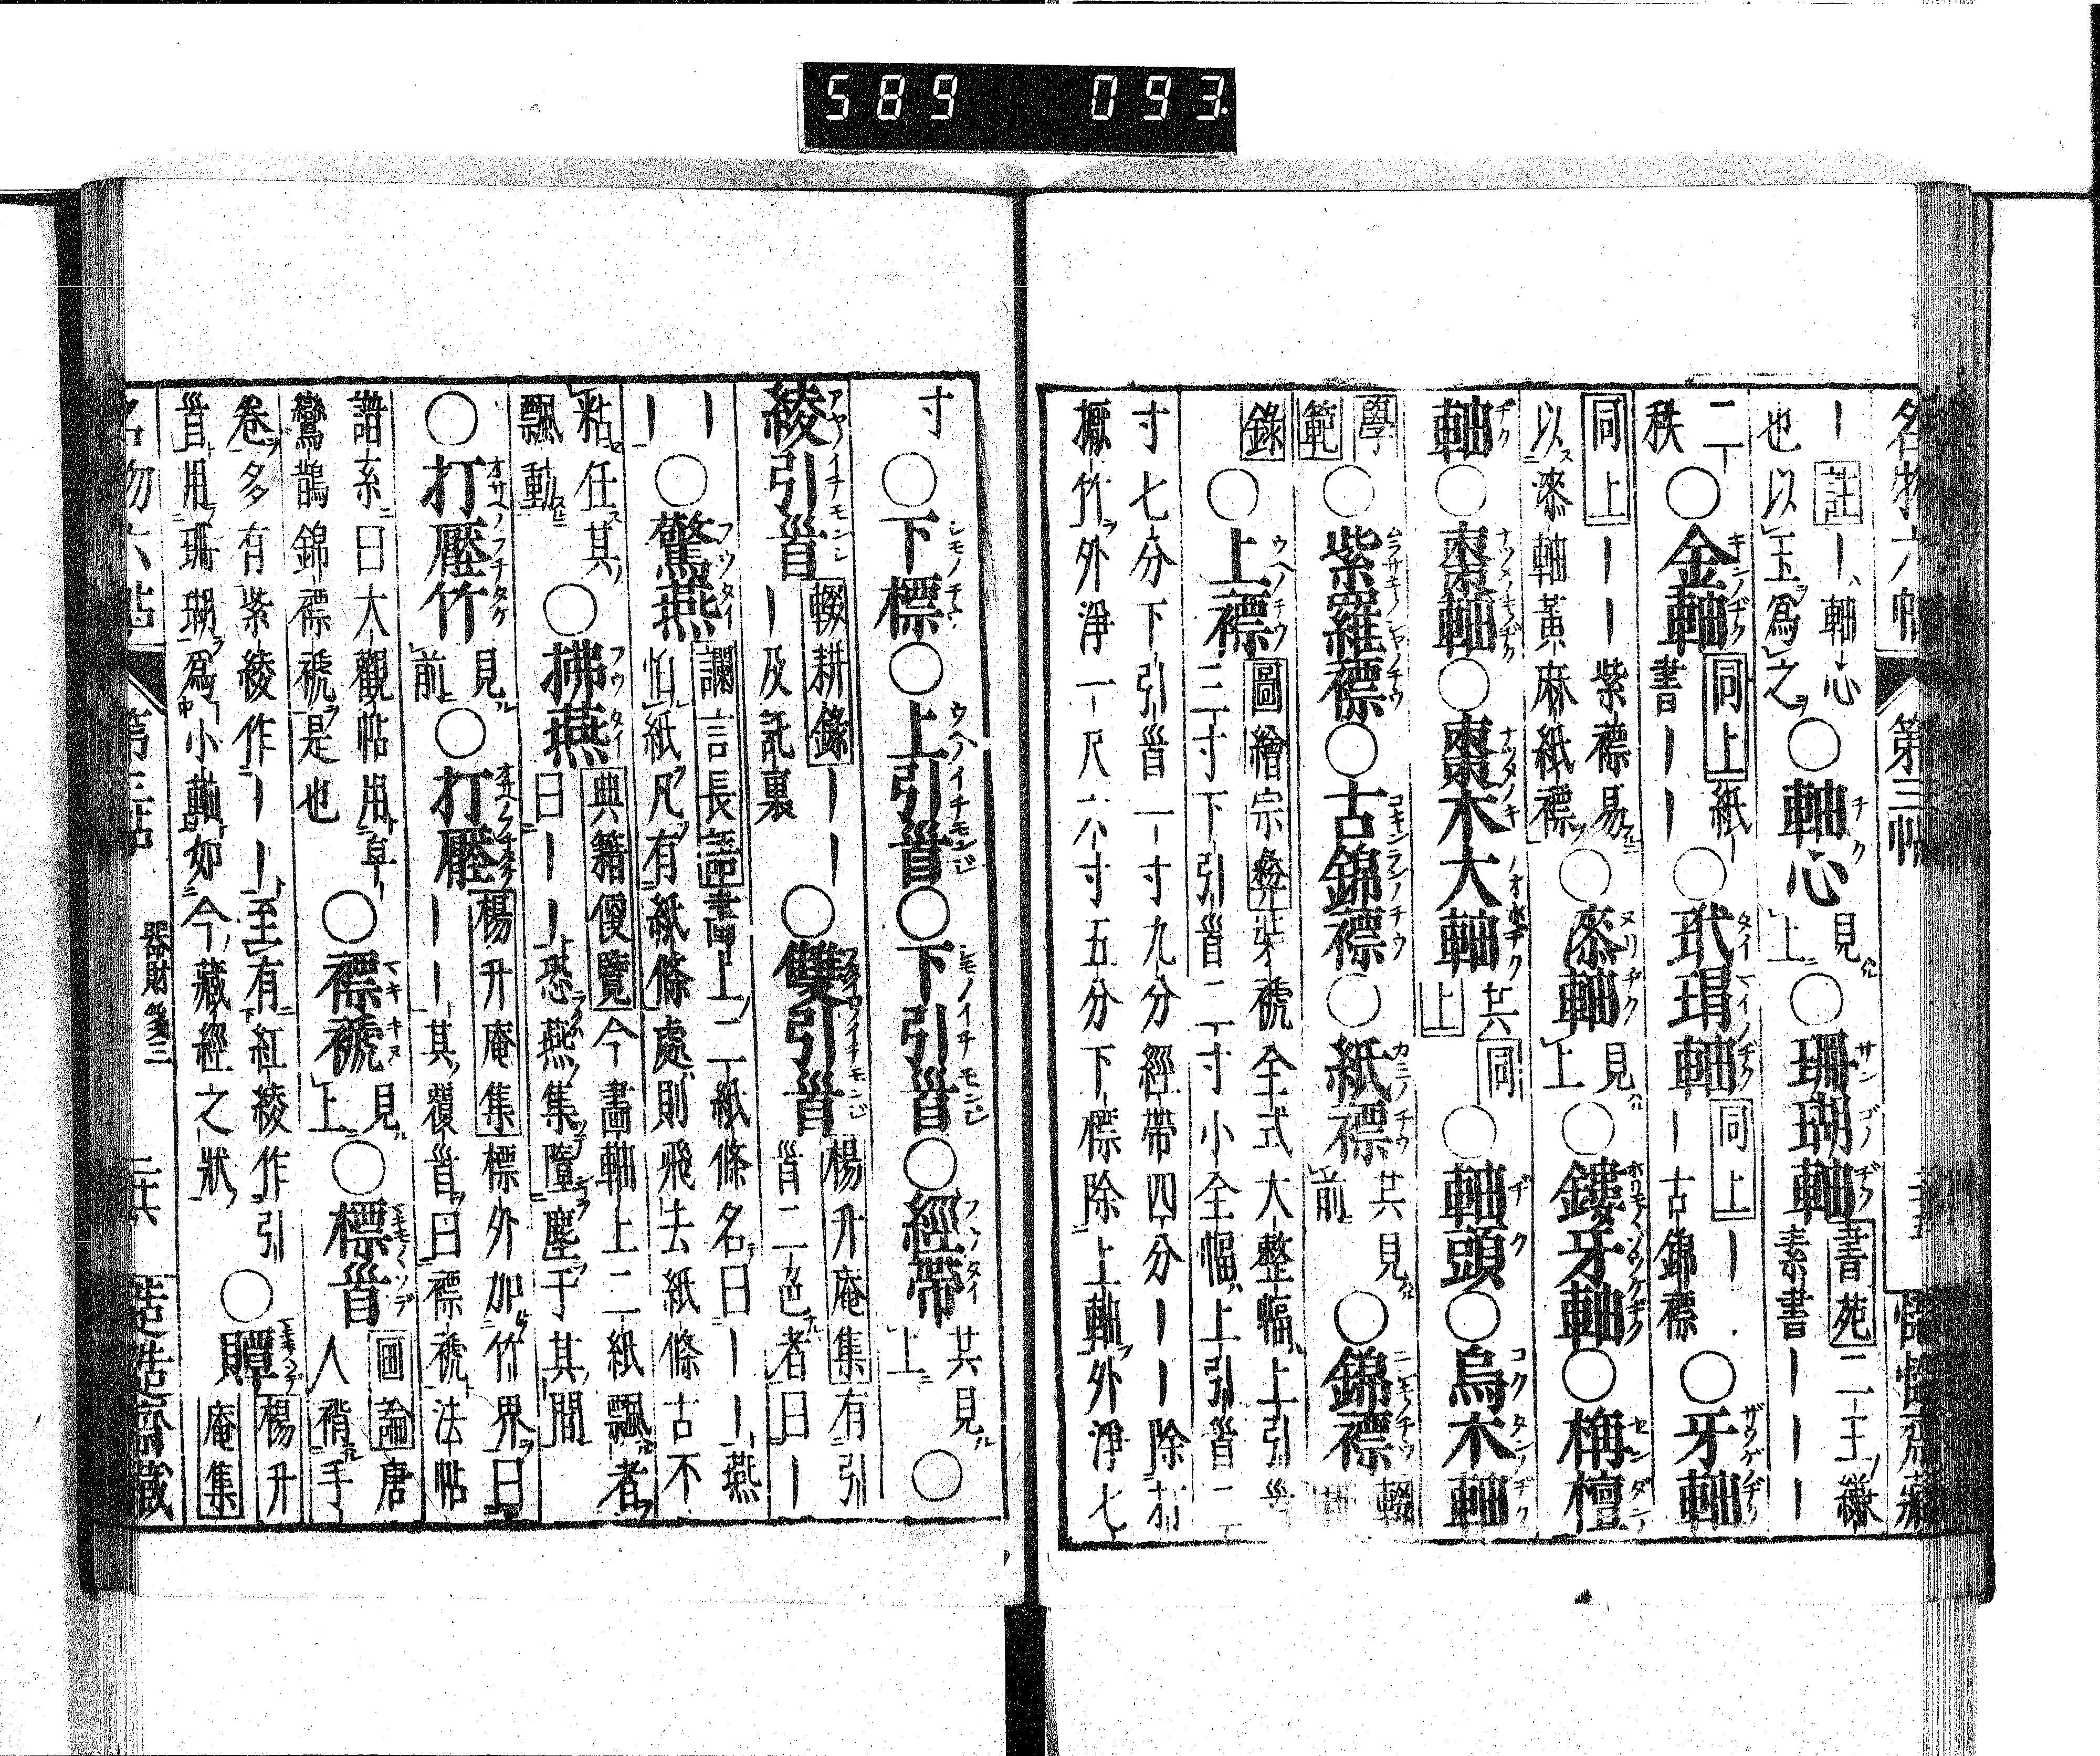 589 093
名物六帖 第三帖
｜註｜軸心
也以玉爲之〇軸心見上〇珊瑚軸書苑二王縑
素書｜｜｜
二｜秩〇金軸同上紙｜書｜｜〇玳瑁軸同上｜｜古錦褾〇牙軸
同上｜｜｜紫褾易
以漆軸黄麻紙褾〇漆軸見上〇鏤牙軸〇栴檀
軸〇棗軸〇棗木大軸共同上〇軸頭〇烏木軸
學範〇紫羅褾〇古錦褾〇紙褾共見前〇錦褾輟耕
錄〇上褾圖繪宗彜裝褫全式大整幅上引首
三寸下引首二寸小全幅上引首二
寸七分下引首一寸九分經帶四分｜｜除
擫竹外淨一尺六寸五分下褾除上軸外淨七
寸〇下褾〇上引首〇下引首〇經帶共見上〇
綾引首輟耕錄｜｜｜及託裏〇雙引首楊升庵集有引首二色者曰｜
｜｜〇驚燕讕言長語書畫上二紙條名曰｜｜燕
怕紙凡有紙條處則飛去紙條古不
粘任其飄動〇拂燕典籍便覽今畫軸上二紙飄者
曰｜｜恐燕集墮塵于其間
〇打壓竹見前〇打壓楊升庵集褾外加竹界曰
｜｜其覆首曰褾褫法帖
譜系曰大觀帖用皁
鸞鵲錦褾褫是也〇褾褫見上〇褾首圖論唐人褙手
卷多有紫綾作｜｜至有紅綾作引
首用珊瑚爲小軸如今藏經之狀〇贉楊升庵集
名物六帖 第三帖 器財箋三 二十六